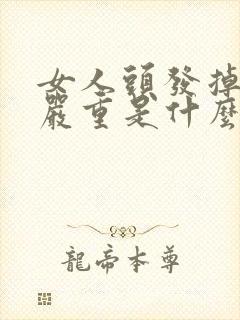 女人頭發掉
嚴重是什麼
龍帝本尊